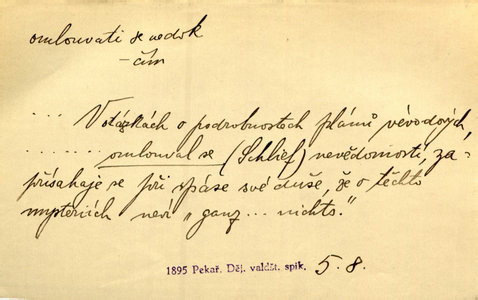 omlouvati se nedok
– čím
.... V otázkách o podrobnostech plánů vévodových,
........ omlouval se (Schlief) nevědomostí, za-
přísahaje se při spáse své duše, že o těchto
mysteriích neví „ganz... nichts."
1895 Pekař. Děj. valdšt. spik. 5.8.